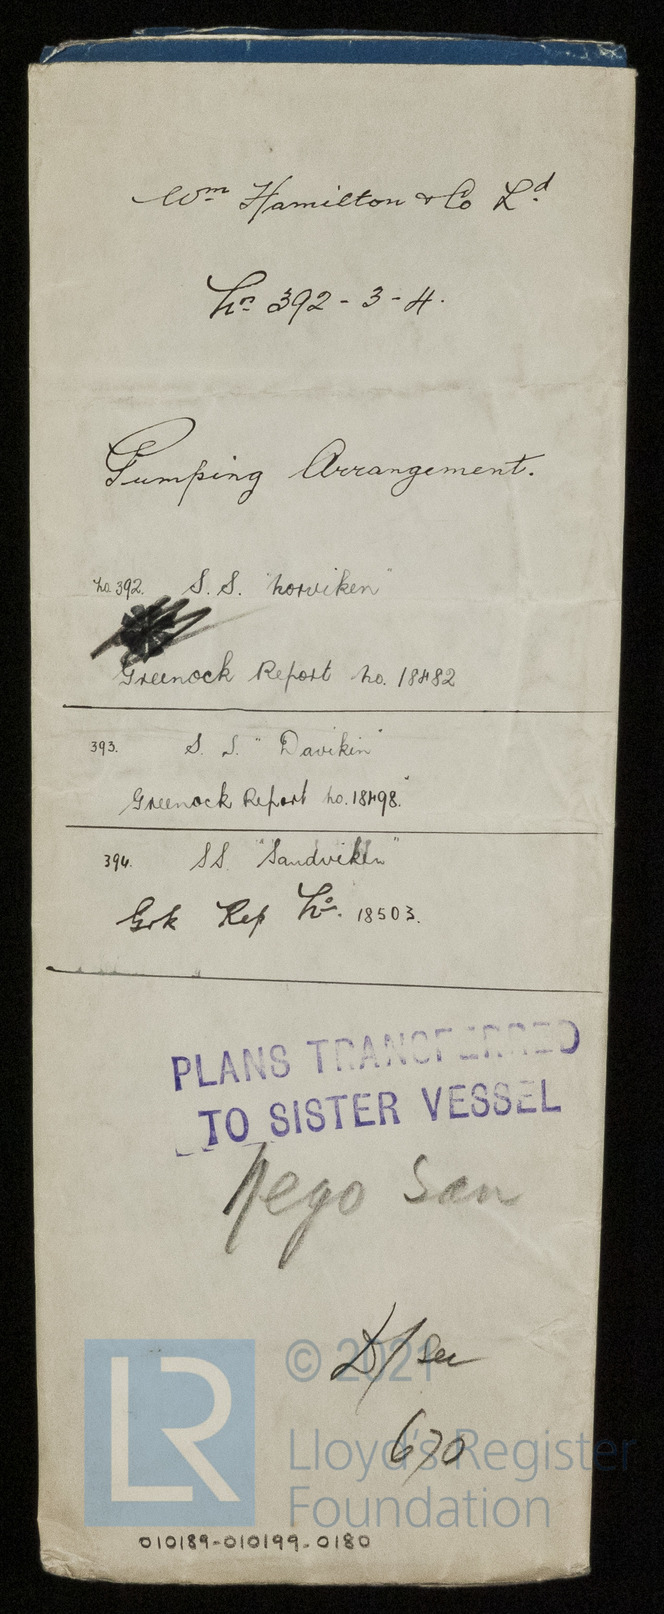 Wm Hamilton & Co Ld.
No 392-3-4.
Pumping Arrangement.
No 392. S.S. "Norviken"
Greenock Report No. 18482
393. S. S. "Davikin"
Greenock Report No. 18498.
394. SS. "Sandviken"
Grk Rep No. 18503.
PLANS TRANSFERRED
TO SISTER VESSEL
San
© 2021
670
LR
Lloyd's Register
Foundation
010189-010199-0180